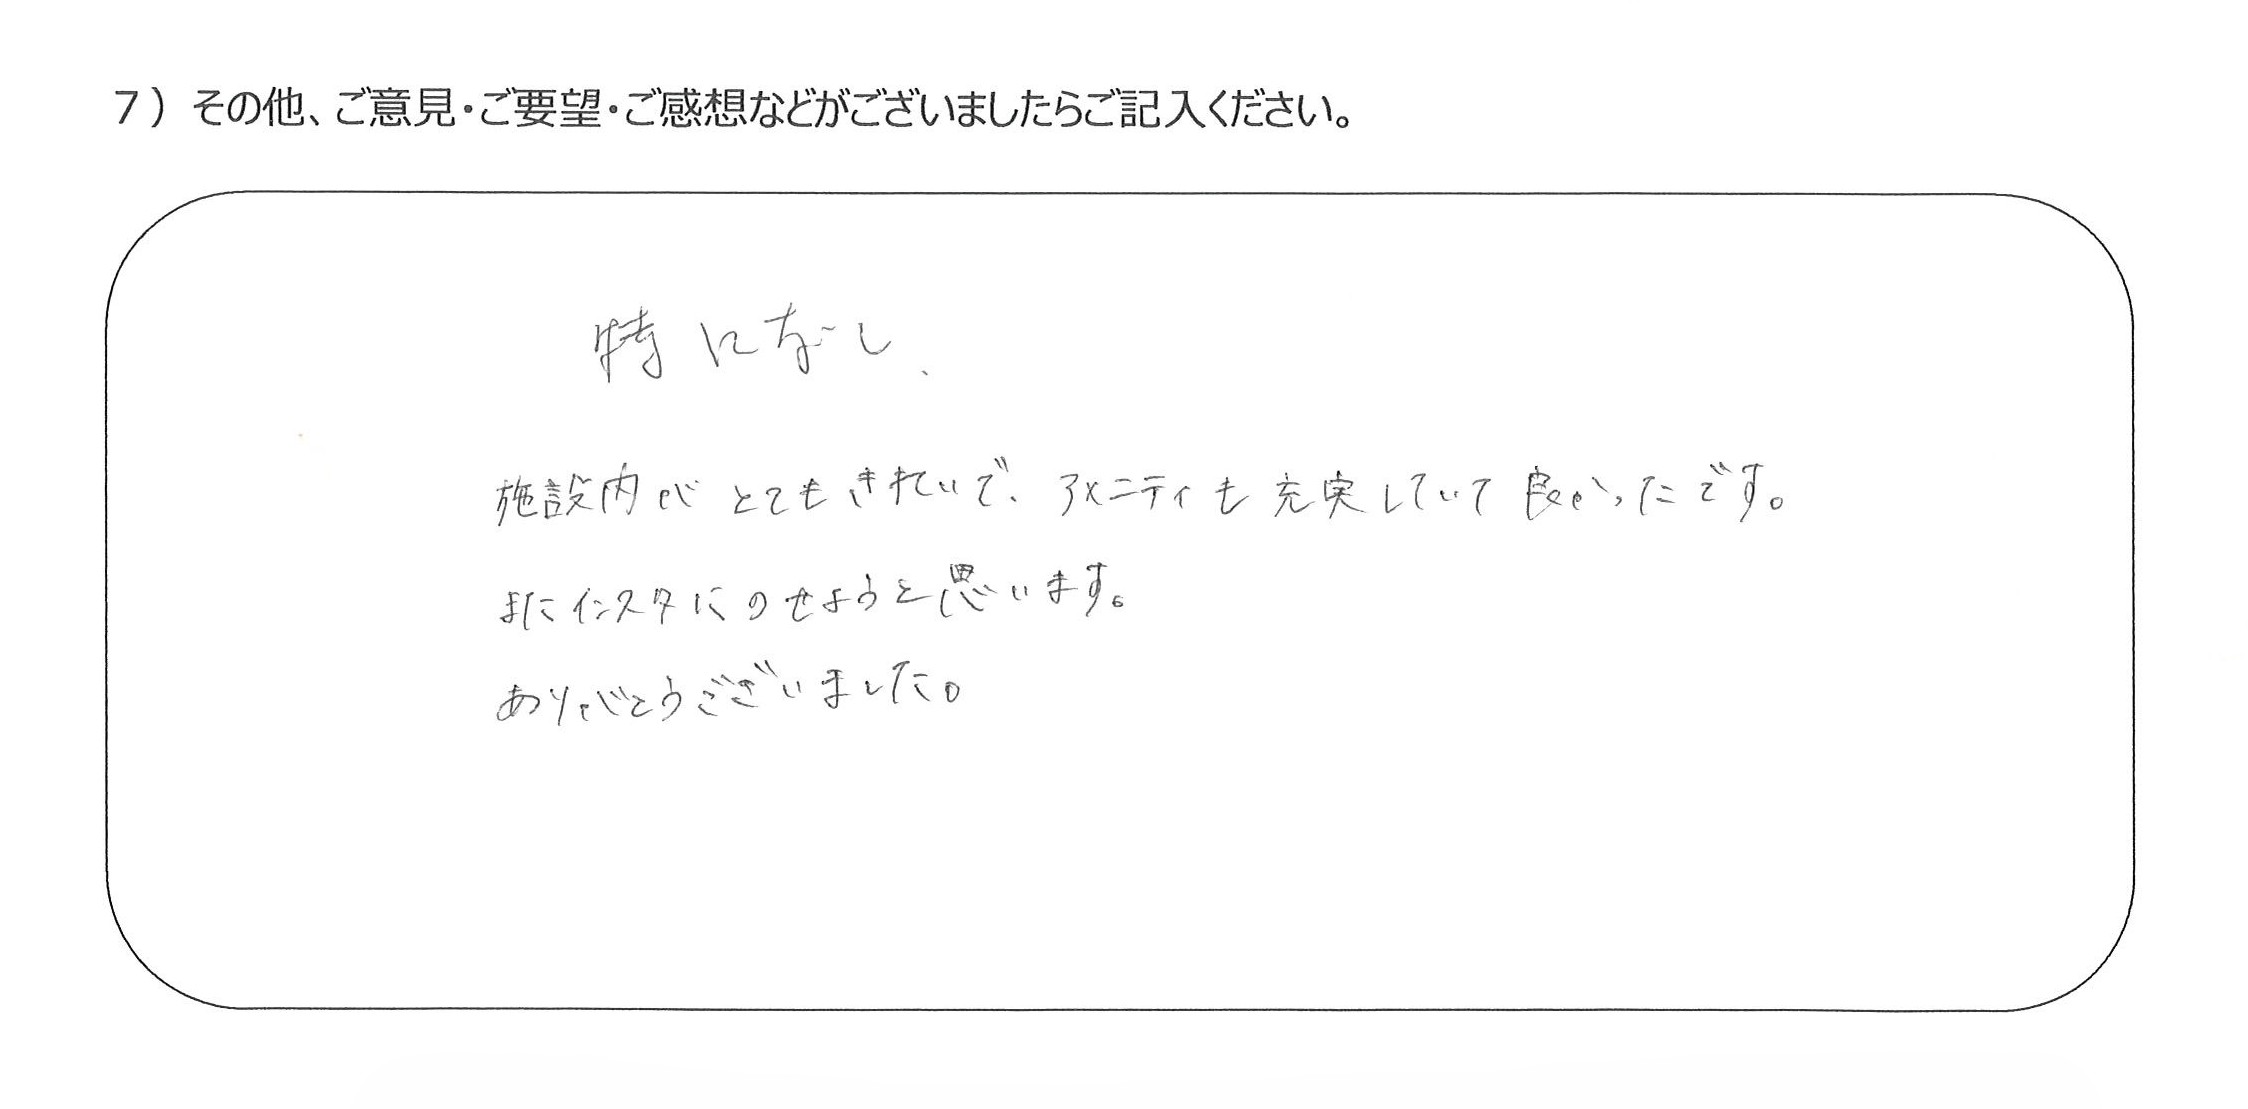 7）その他、ご意見・ご要望・ご感想などがございましたらご記入ください。
特になし、
施設内がとてもきれいで、アメニティも充実していて良かったです。
またインスタにのせようと思います。
ありがとうございました。